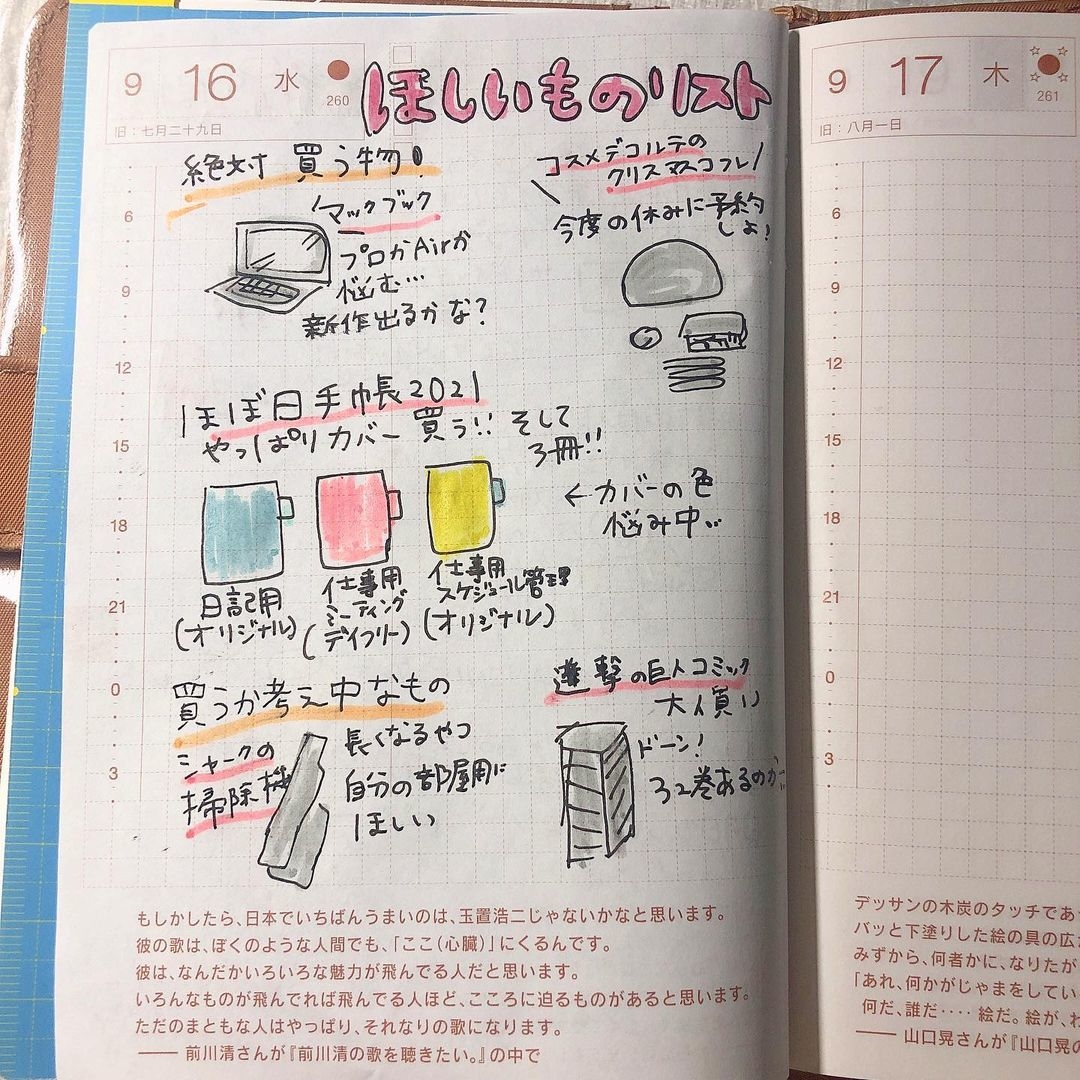 9 16 水 260
旧:七月二十九日
ほしいものリスト
絶対 買う物!
マックブック
プロかAirか
悩む…
新作出るかな?
コスメデコルテの
クリスマスコフレ
今度の休みに予約
しよ!
ほぼ日手帳2021
やっぱりカバー買う!! そして
3冊!!
←カバーの色
悩み中..
日記用
(オリジナル)
仕事用
ミーティング
(デイフリー)
仕事用
スケジュール管理
(オリジナル)
買うか考え中なもの
シャークの
掃除機
長くなるやつ
自分の部屋用に
ほしい
進撃の巨人コミック
大人買い
ドーン!
32巻あるのか…
6
9
12
15
18
21
0
3
もしかしたら、日本でいちばんうまいのは、玉置浩二じゃないかなと思います。
彼の歌は、ぼくのような人間でも、「ここ(心臓)」にくるんです。
彼は、なんだかいろいろな魅力が飛んでる人だと思います。
いろんなものが飛んでれば飛んでる人ほど、こころに迫るものがあると思います。
ただのまともな人はやっぱり、それなりの歌になります。
―― 前川清さんが『前川清の歌を聴きたい。』の中で
9 17 木 261
旧:八月一日
6
9
12
15
18
21
0
3
デッサンの木炭のタッチであ
バッと下塗りした絵の具の広
みずから、何者かに、なりたが
「あれ、何かがじゃまをしてい
何だ、誰だ‥‥ 絵だ。絵が、わ
―― 山口晃さんが『山口晃の